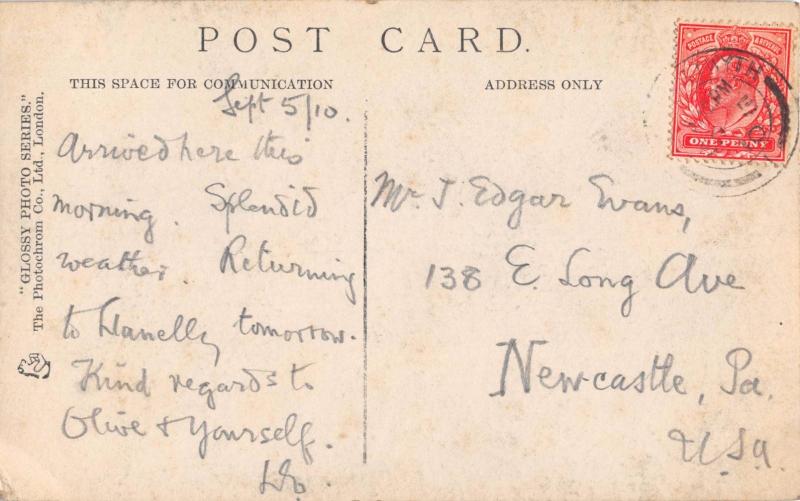 POST CARD.
THIS SPACE FOR COMMUNICATION
ADDRESS ONLY
"GLOSSY PHOTO SERIES."
The Photochrom Co., Ltd., London.
Sept 5/10.
Arrived here this
morning. Splendid
weather. Returning
to Llanelly tomorrow.
Kind regards to
Olive & Yourself.
Mr. J. Edgar Evans,
138 E. Long Ave
Newcastle, Pa.
U.S.A.
POSTAGE REVENUE
ONE PENNY